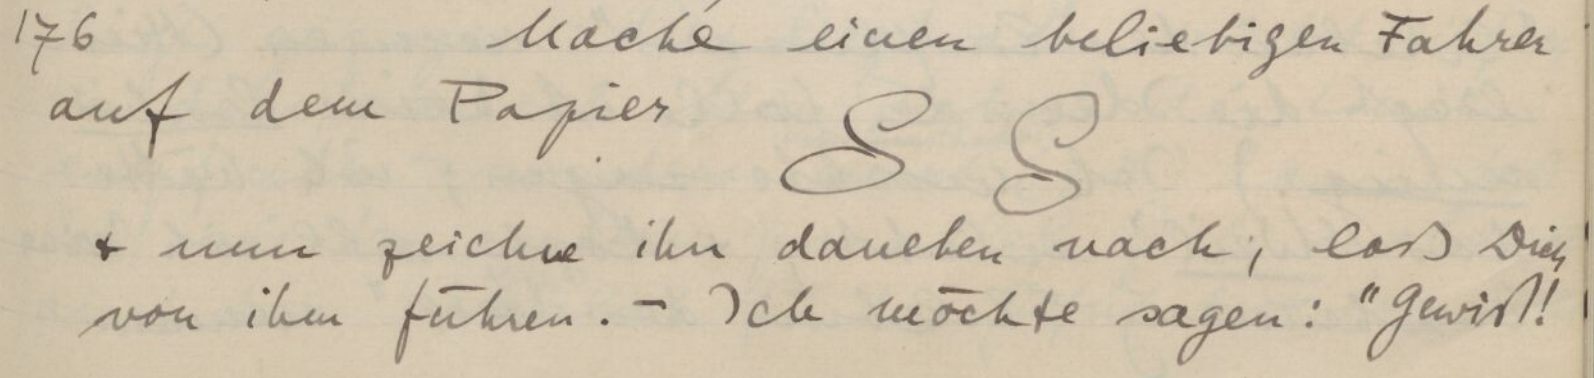 176 Mache einen beliebigen Fahrer
auf dem Papier
+ nun zeichne ihn daneben nach, laß Dich
von ihm führen. – Ich möchte sagen: "Gewiß!